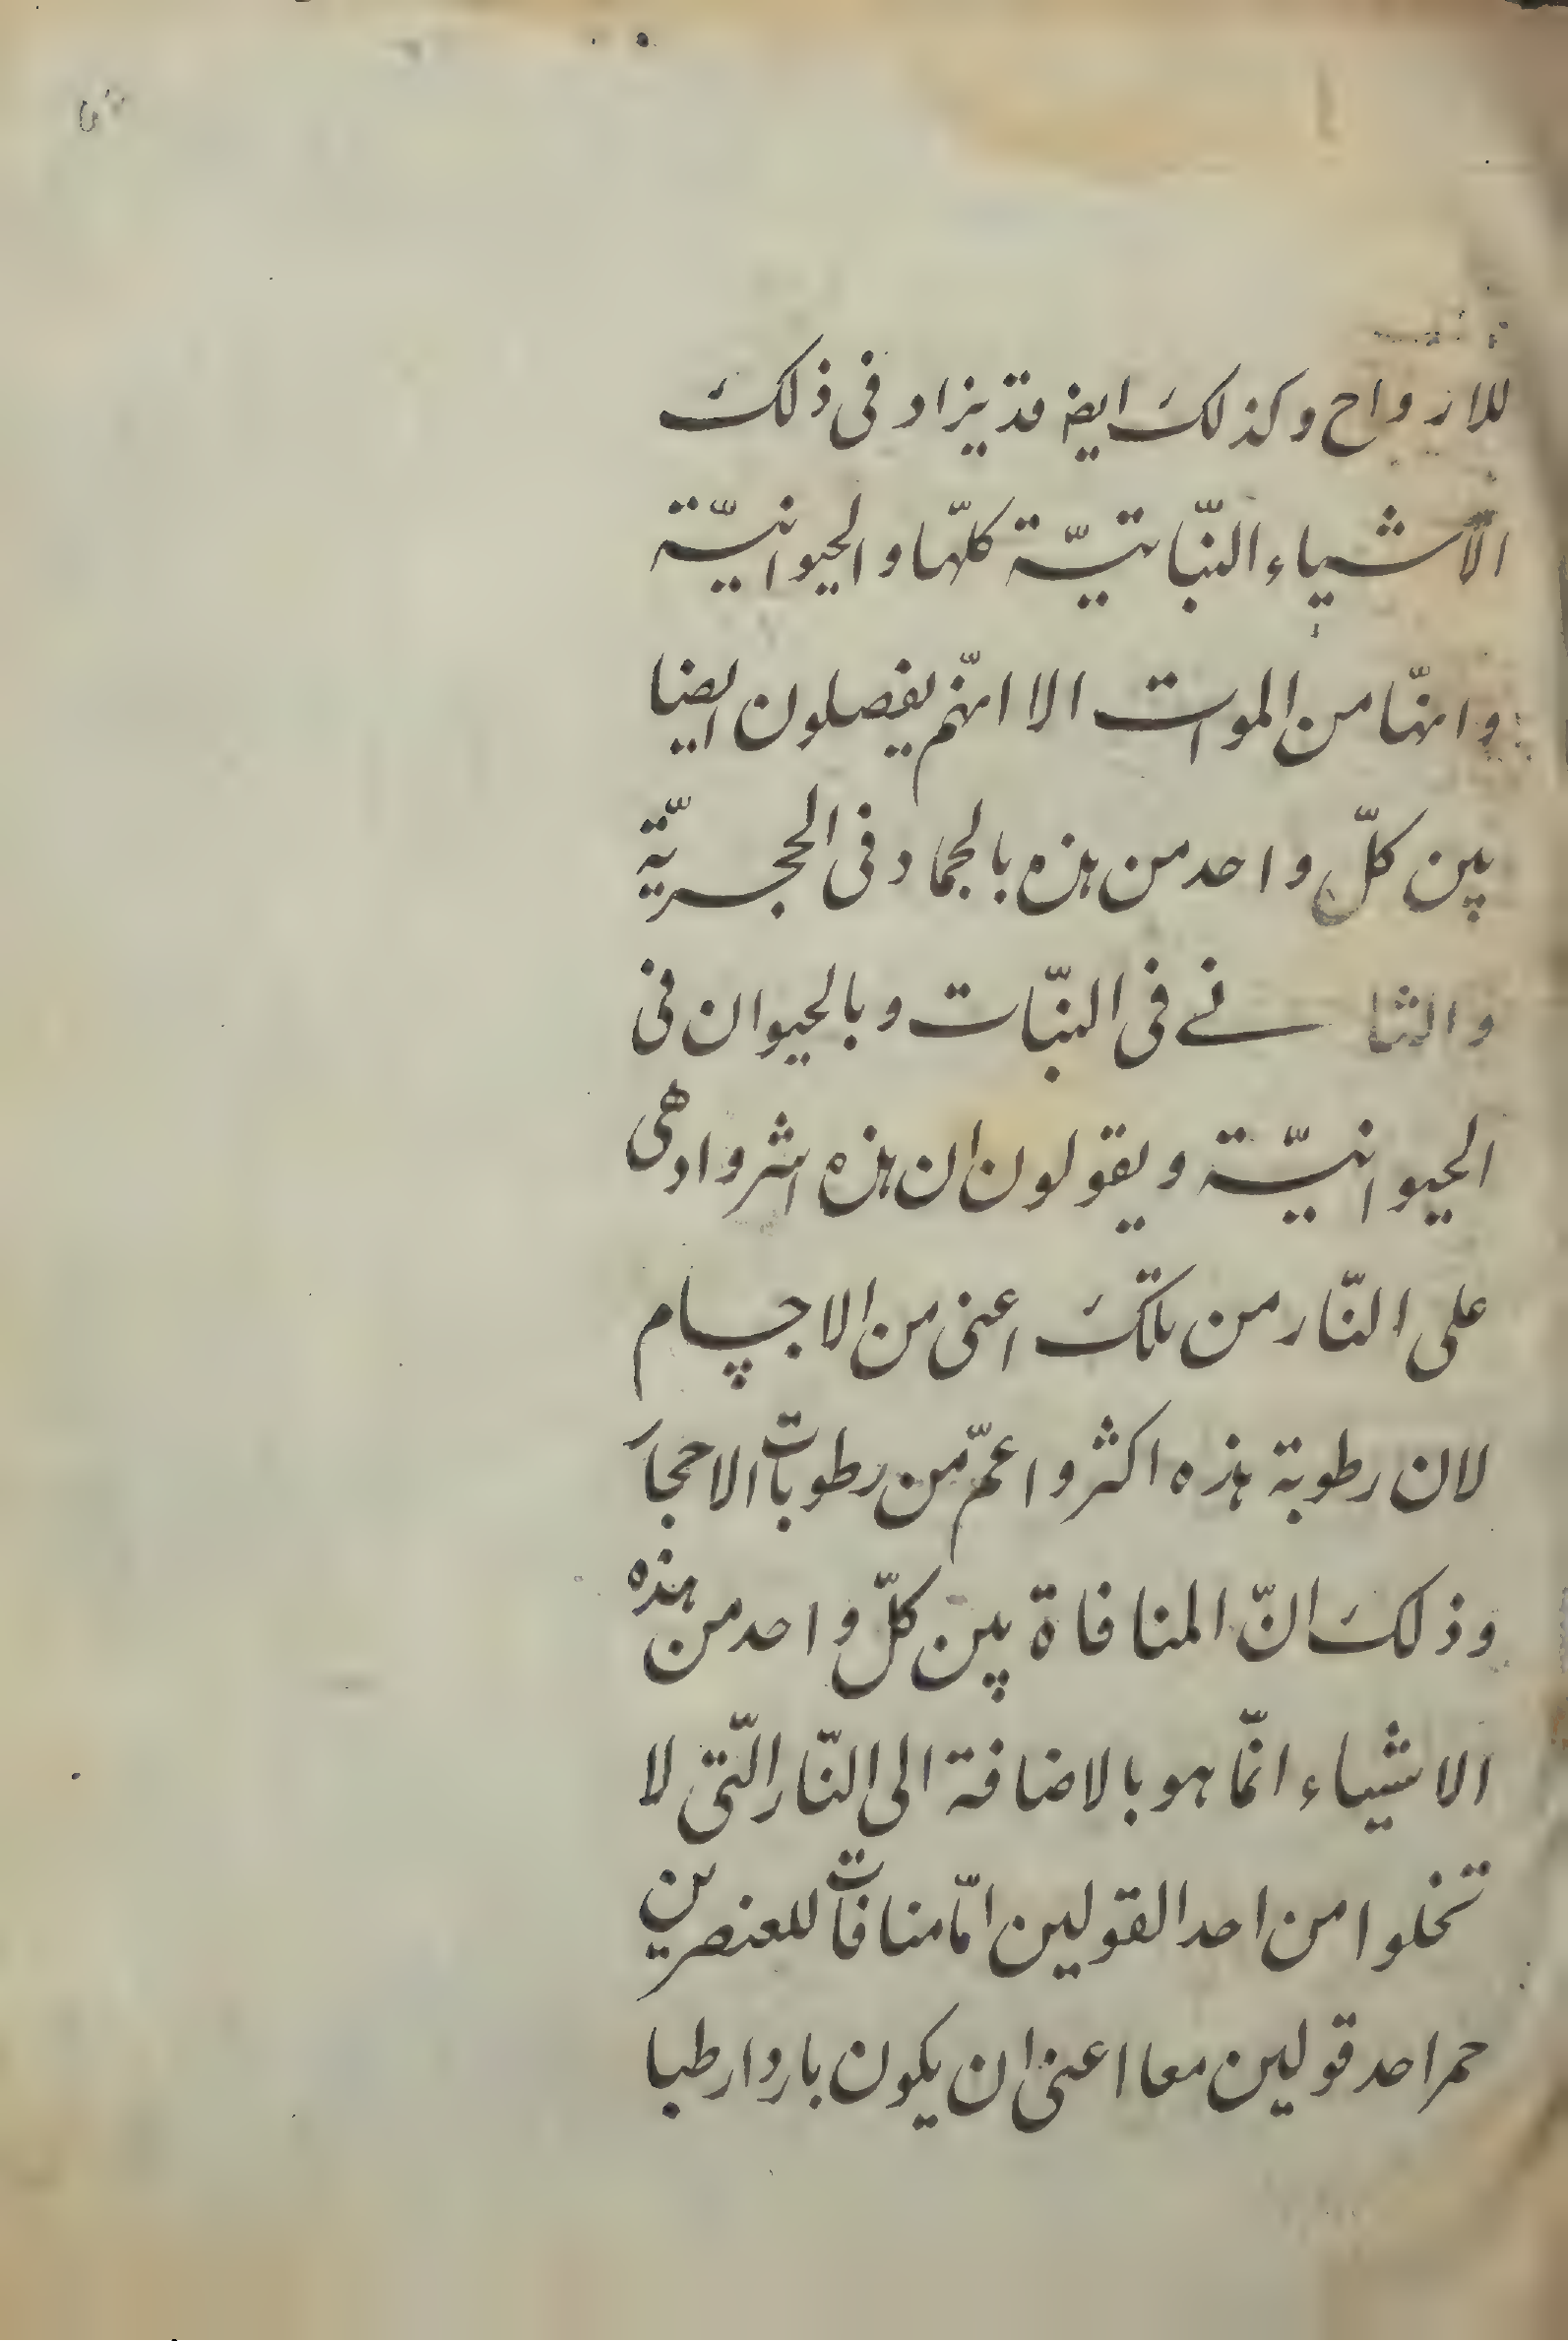 للارواح وكذلك ايضه قد يزاد فى ذلك
الأشياء النّباتيّة كلّها والحيوانيّة
وانّها من الموات الا انّهم يفصلون ايضا
بين كلّ واحد من هذه بالجماد فى الحجريّة
والثا نے فى النّبات وبالحيوان فى
الحيوانيّة ويقولون ان هذه اشر وادهى
على النّار من تلك اعنى من الاجسام
لان رطوبة هذه اكثر واعمّ من رطوبات الاحجار
وذلك انّ المنافاة بين كلّ واحد من هذه
الاشياء انّما هو بالاضافة الى النّار الّتى لا
تخلوا من احد القولين امّا منافات للعنصرين
حمر احد قولين معا اعنى ان يكون باردا رطبا